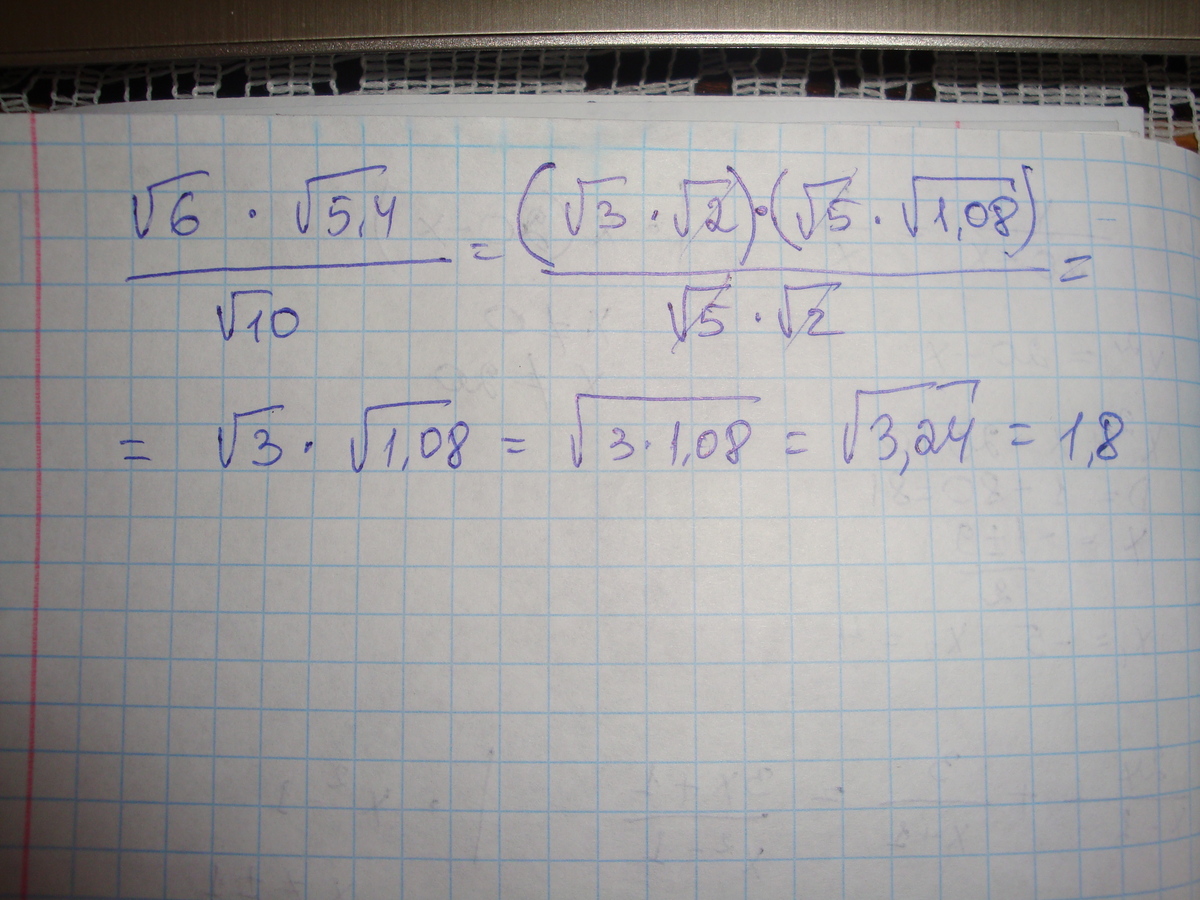 √6 · √5,4 / √10 = (√3 · √2) · (√5 · √1,08) / √5 · √2 =
= √3 · √1,08 = √3 · 1,08 = √3,24 = 1,8